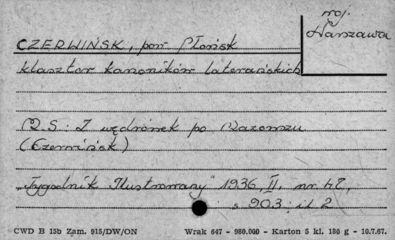 woj.
Warszawa
CZERWIŃSK, pow. Płońsk
klasztor kanoników laterańskich
R.S: Z wędrówek po Mazowszu
(Czerwińsk)
"Tygodnik Ilustrowany" 1936, II, nr. 47,
s 903; il 2
CWD B 15b Zam. 915/DW/ON Wrak 647 - 980.000 - Karton 5 kl. 180 g - 10.7.67.